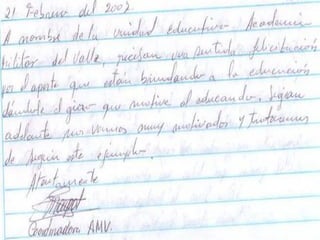 21 Febrero del 2002
A nombre de la unidad educativa. Academia
Militar del Valle, reciban una sentida felicitación
por el aporte que están brindando a la educación
dándole el giro que motive al educando. Sigan
adelante nos vamos muy motivados y trataremos
de seguir este ejemplo.
Atentamente
Coordinadora AMV.